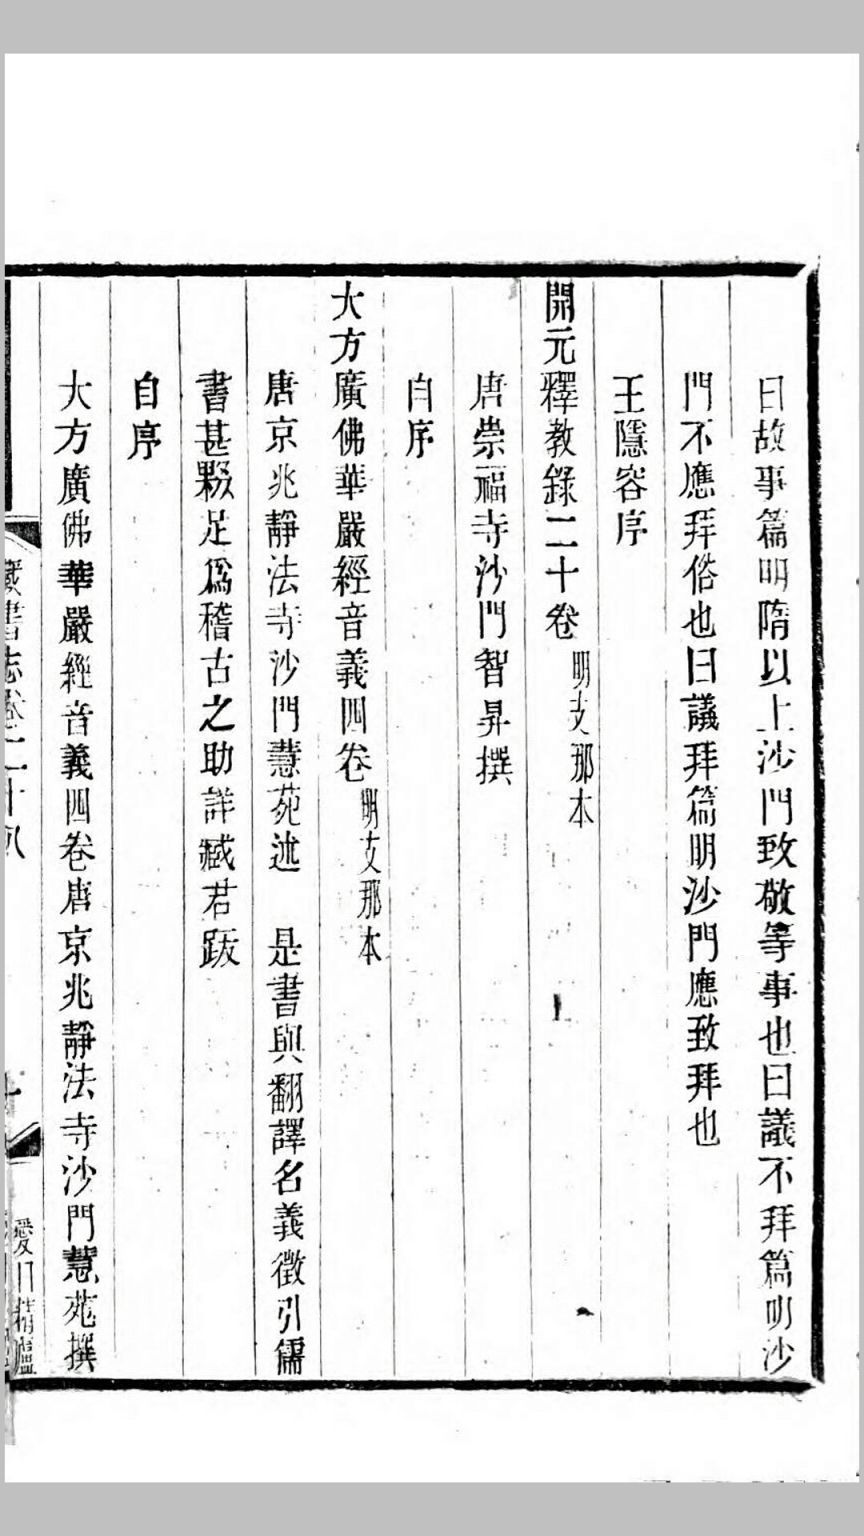 曰故事篇明隋以上沙門致敬等事也曰議不拜篇明沙
門不應拜俗也曰議拜篇明沙門應致拜也
王隱容序
開元釋教錄二十卷明支那本
唐崇福寺沙門智昇撰
自序
大方廣佛華嚴經音義四卷明支那本
唐京兆靜法寺沙門慧苑述 是書與翻譯名義徵引儒
書甚夥足爲稽古之助詳臧君䟦
自序
大方廣佛華嚴經音義四卷唐京兆靜法寺沙門慧苑撰
藏書志卷二十八
愛日精廬